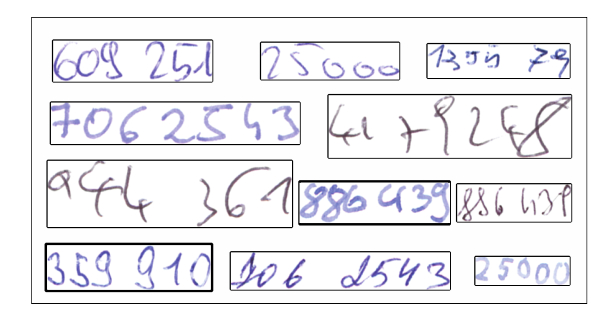 609 251
25000
1355 79
7062543
41 79248
944 361
886 439
886 439
359 910
706 2543
25000